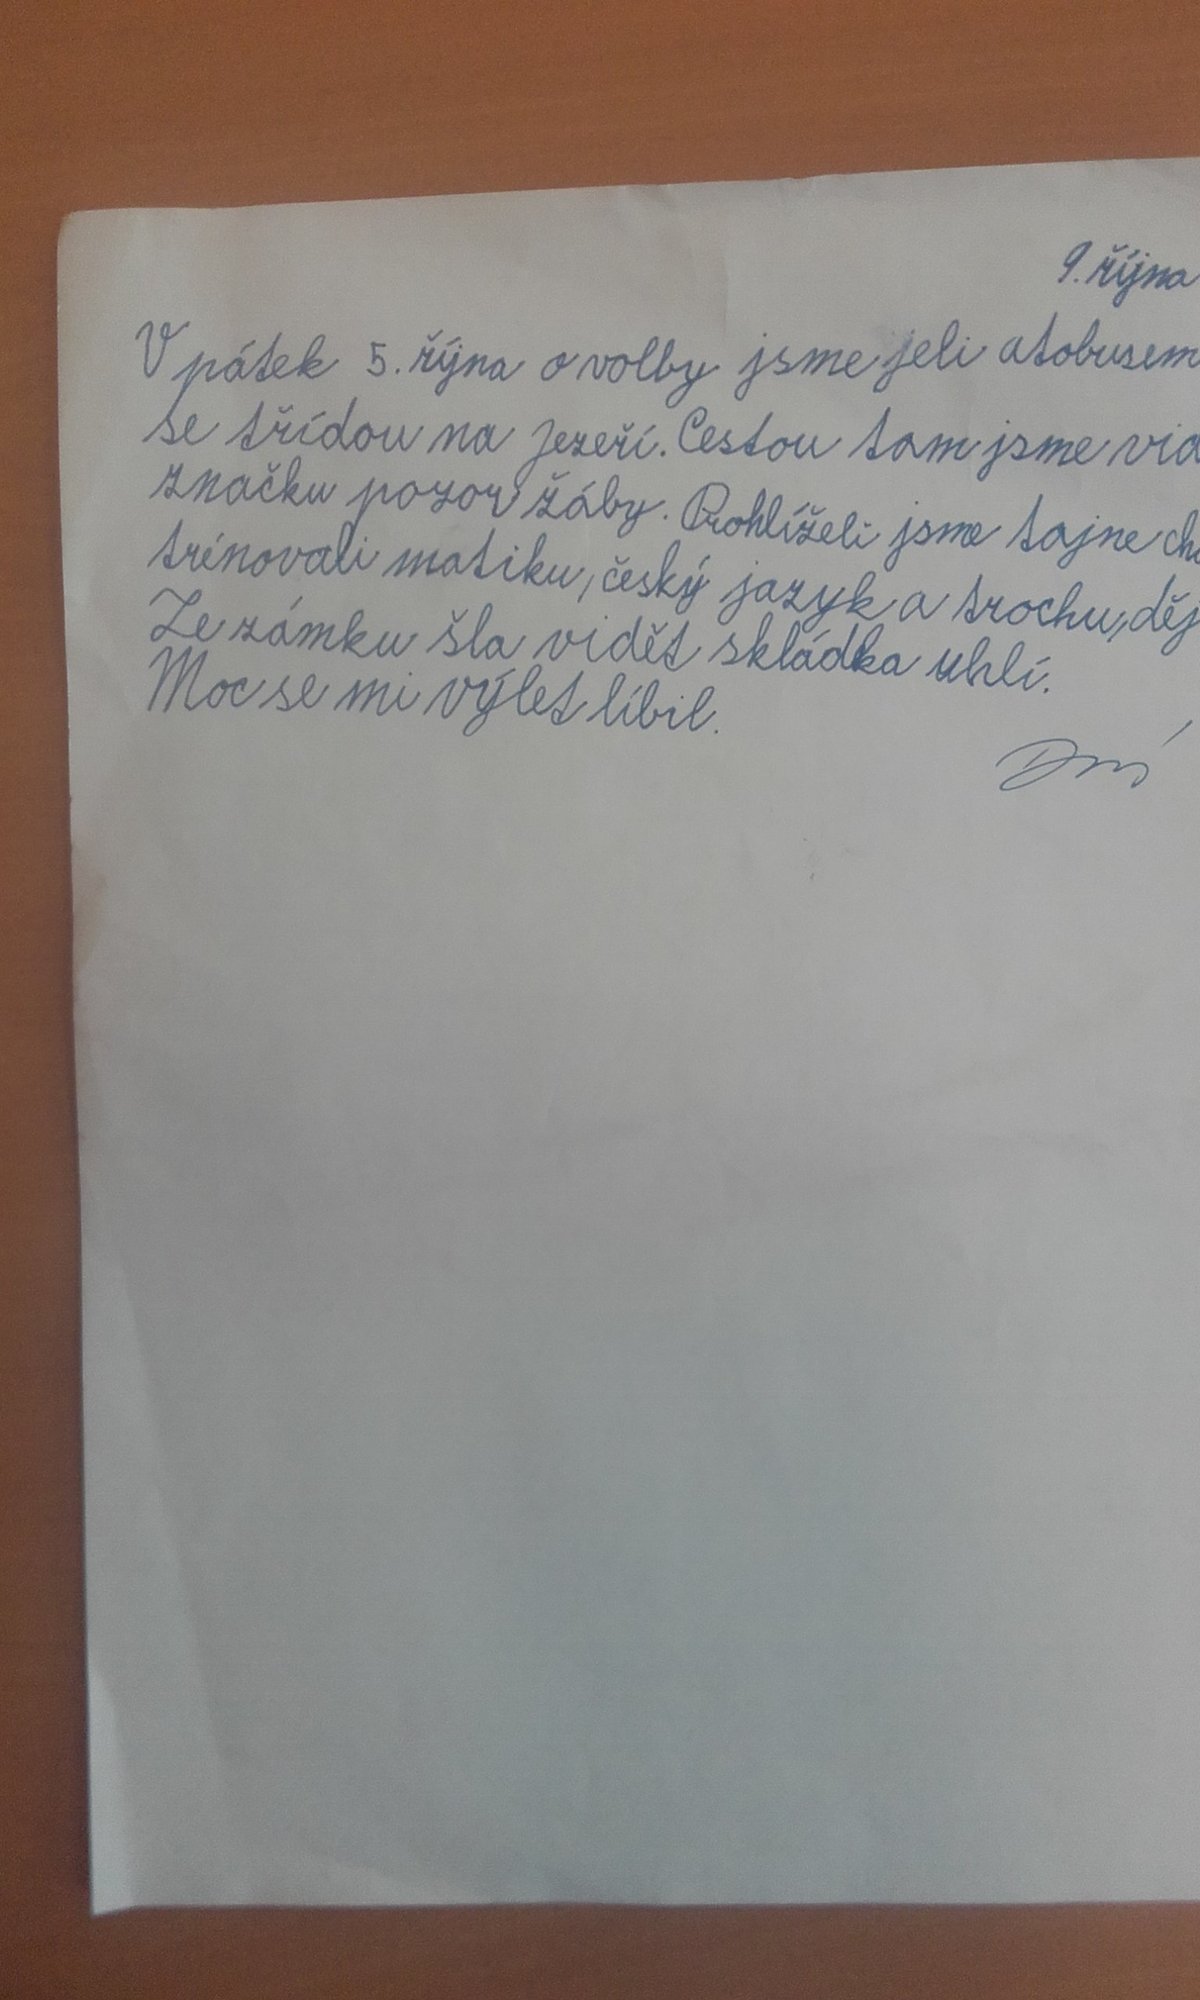 9. října
V pátek 5. října o volby jsme jeli atobusem
se třídou na Jezeří. Cestou tam jsme vid
značku pozor žáby. Prohlíželi jsme tajne cho
trénovali matiku, český jazyk a trochu, děj
Ze zámku šla vidět skládka uhlí.
Moc se mi výlet líbil.